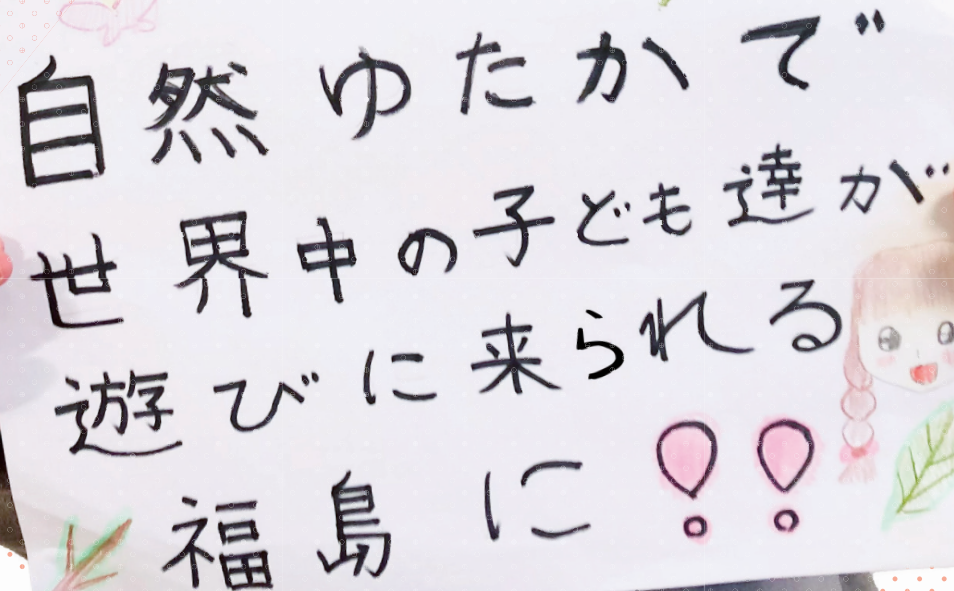 自然ゆたかで
世界中の子ども達が
遊びに来られる
福島に!!